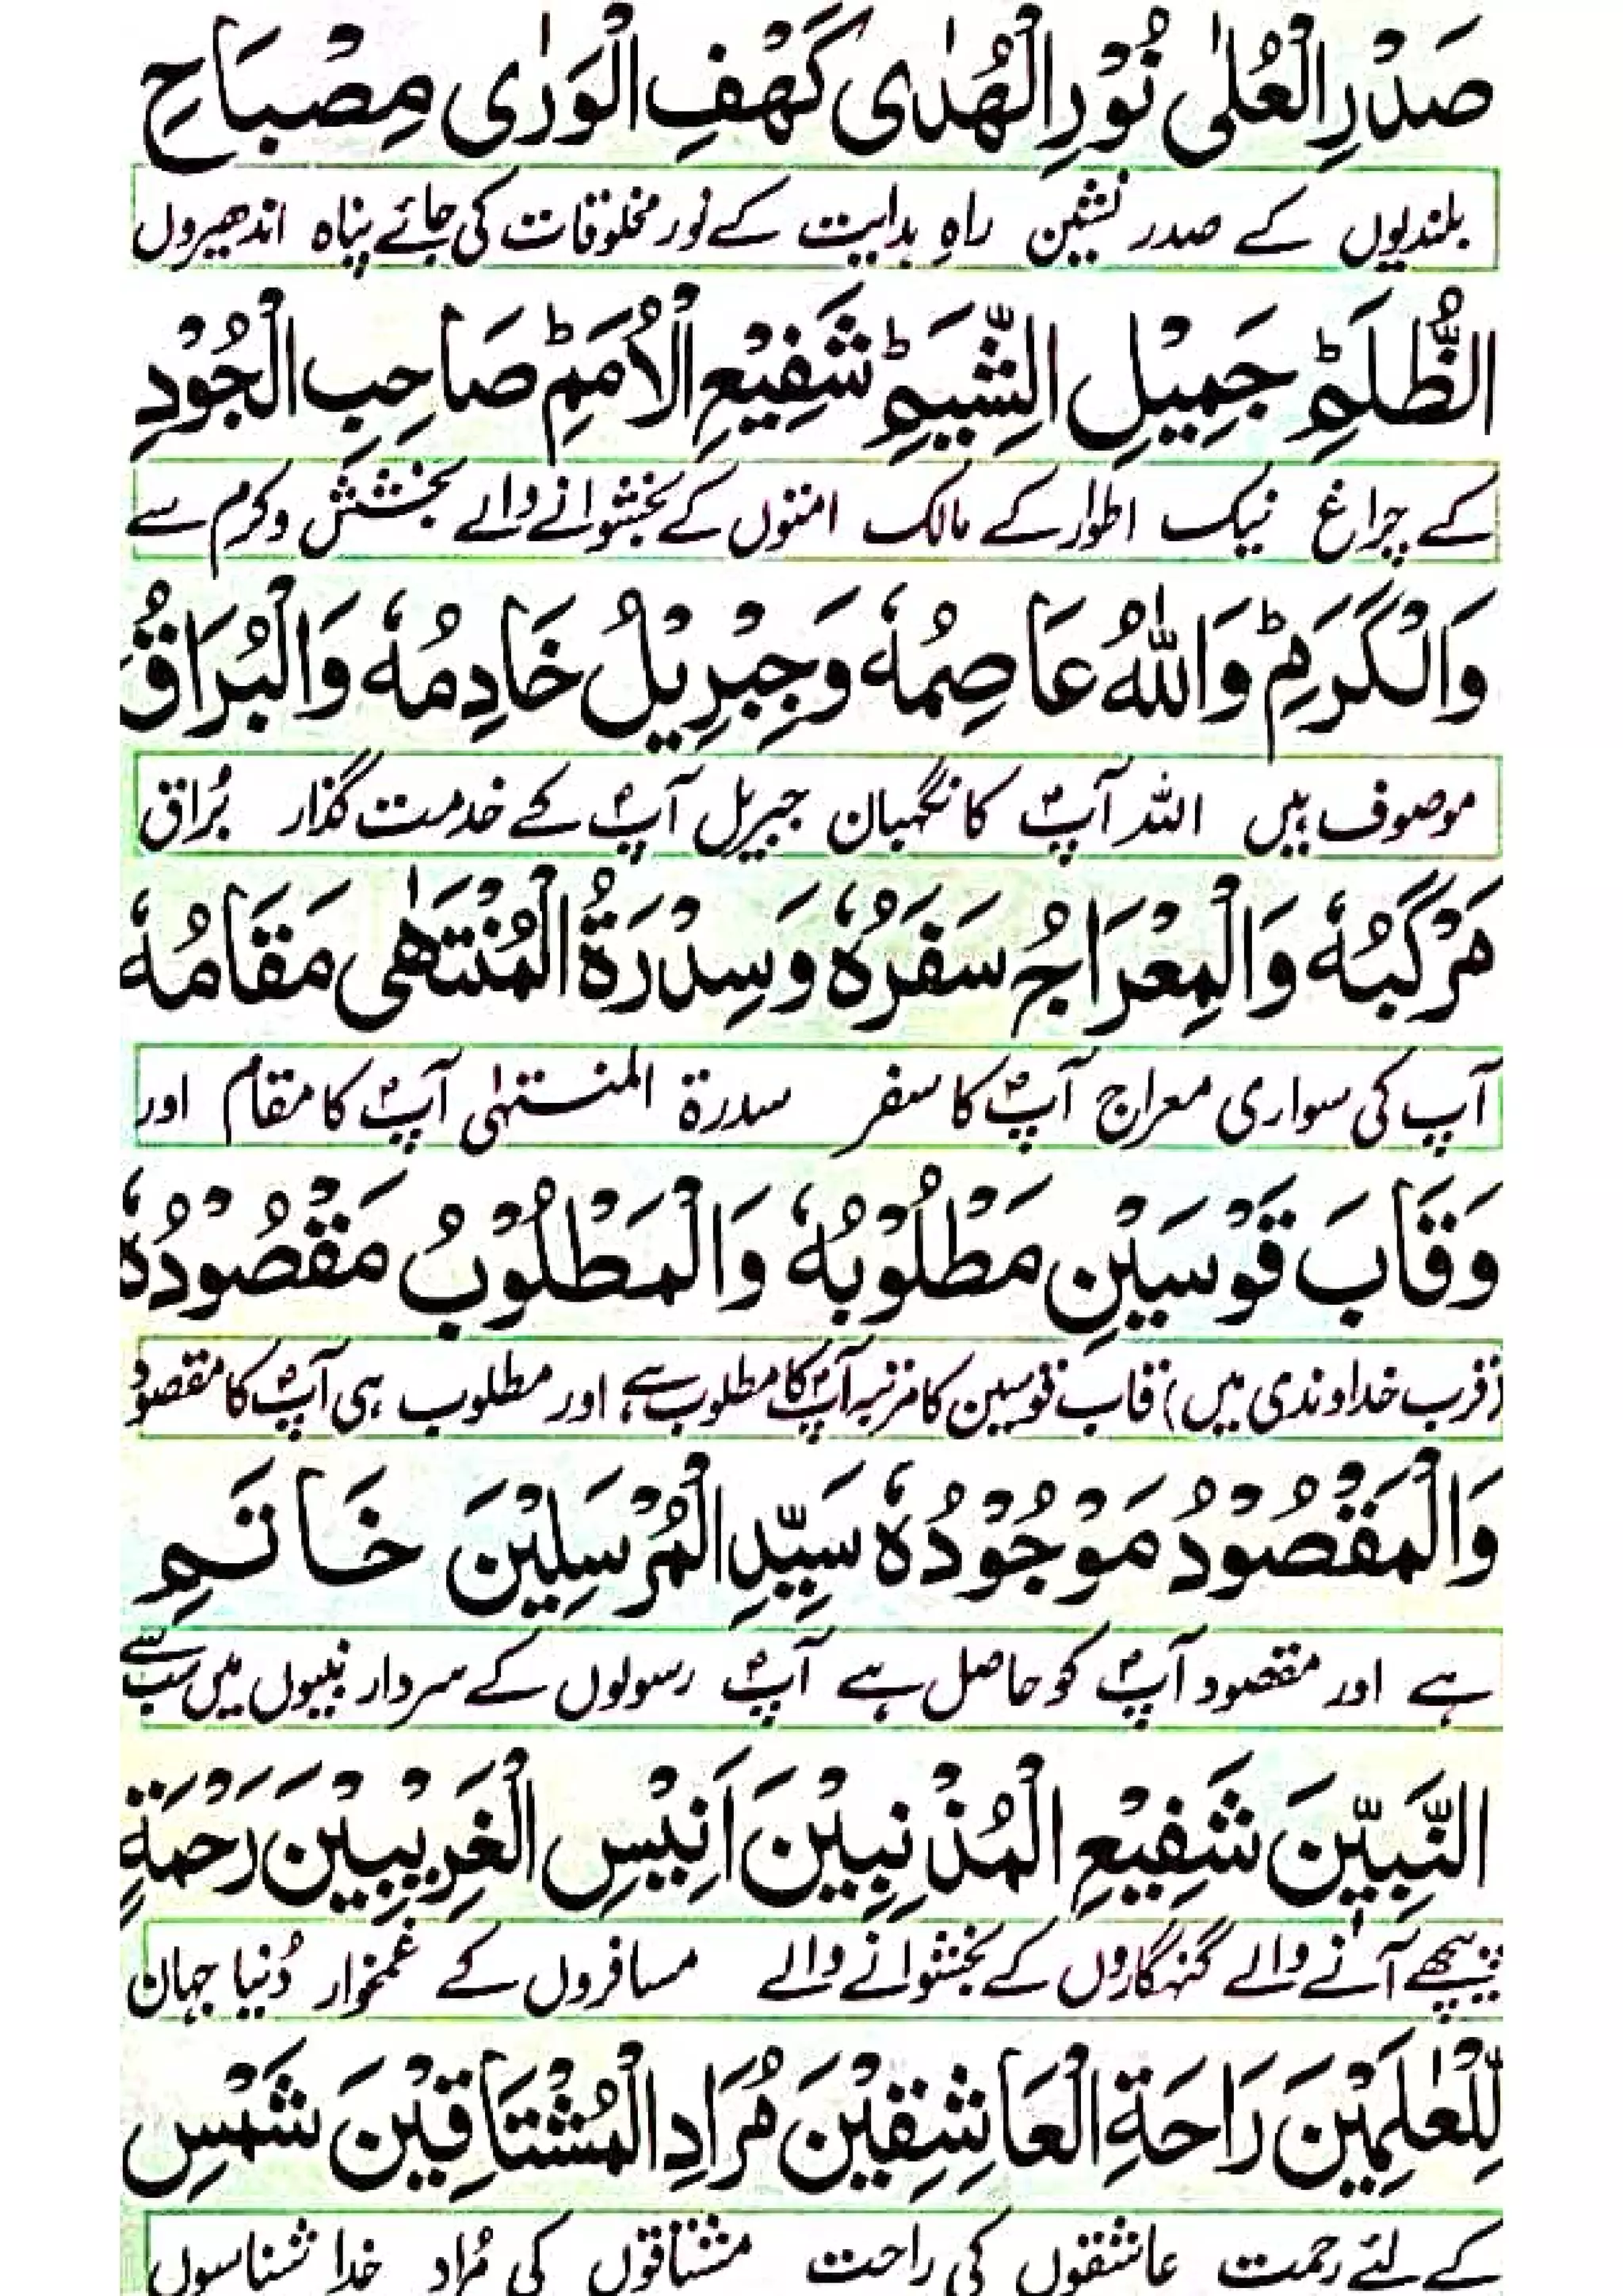 صَدْرِ الْعُلٰی نُوْرِ الْهُدٰی کَهْفِ الْوَرٰی مِصْبَاحِ
بلندیوں کے صدر نشین راہِ ہدایت کے نور مخلوقات کی جائے پناہ اندھیروں
الظُّلَمِؕ جَمِیْلِ الشِّیَمِؕ شَفِیْعِ الْاُمَمِؕ صَاحِبِ الْجُوْدِ
کے چراغ نیک اطوار کے مالک امتوں کے بخشوانے والے بخشش و کرم سے
وَالْکَرَمِؕ وَاللّٰهُ عَاصِمُهٗ وَجِبْرِیْلُ خَادِمُهٗ وَالْبُرَاقُ
موصوف ہیں اللہ آپؐ کا نگہبان جبریل آپؐ کے خدمت گذار بُراق
مَرْکَبُهٗ وَالْمِعْرَاجُ سَفَرُهٗ وَسِدْرَةُ الْمُنْتَهٰی مَقَامُهٗ
آپ کی سواری معراج آپؐ کا سفر سدرۃ المنتہٰی آپؐ کا مقام اور
وَقَابَ قَوْسَیْنِ مَطْلُوْبُهٗ وَالْمَطْلُوْبُ مَقْصُوْدُهٗ
(قرب خداوندی میں) قاب قوسین کا مرتبہ آپؐ کا مطلوب ہے اور مطلوب ہی آپؐ کا مقصود
وَالْمَقْصُوْدُ مَوْجُوْدُهٗ سَیِّدِ الْمُرْسَلِیْنَ خَاتَمِ
ہے اور مقصود آپؐ کو حاصل ہے آپؐ رسولوں کے سردار نبیوں میں سب سے
النَّبِیّٖنَ شَفِیْعِ الْمُذْنِبِیْنَ اَنِیْسِ الْغَرِیْبِیْنَ رَحْمَةٍ
پیچھے آنے والے گنہگاروں کے بخشوانے والے مسافروں کے غمخوار دُنیا جہان
لِّلْعٰلَمِیْنَ رَاحَةِ الْعَاشِقِیْنَ مُرَادِ الْمُشْتَاقِیْنَ شَمْسِ
کے لئے رحمت عاشقوں کی راحت مشتاقوں کی مُراد خدا شناسوں